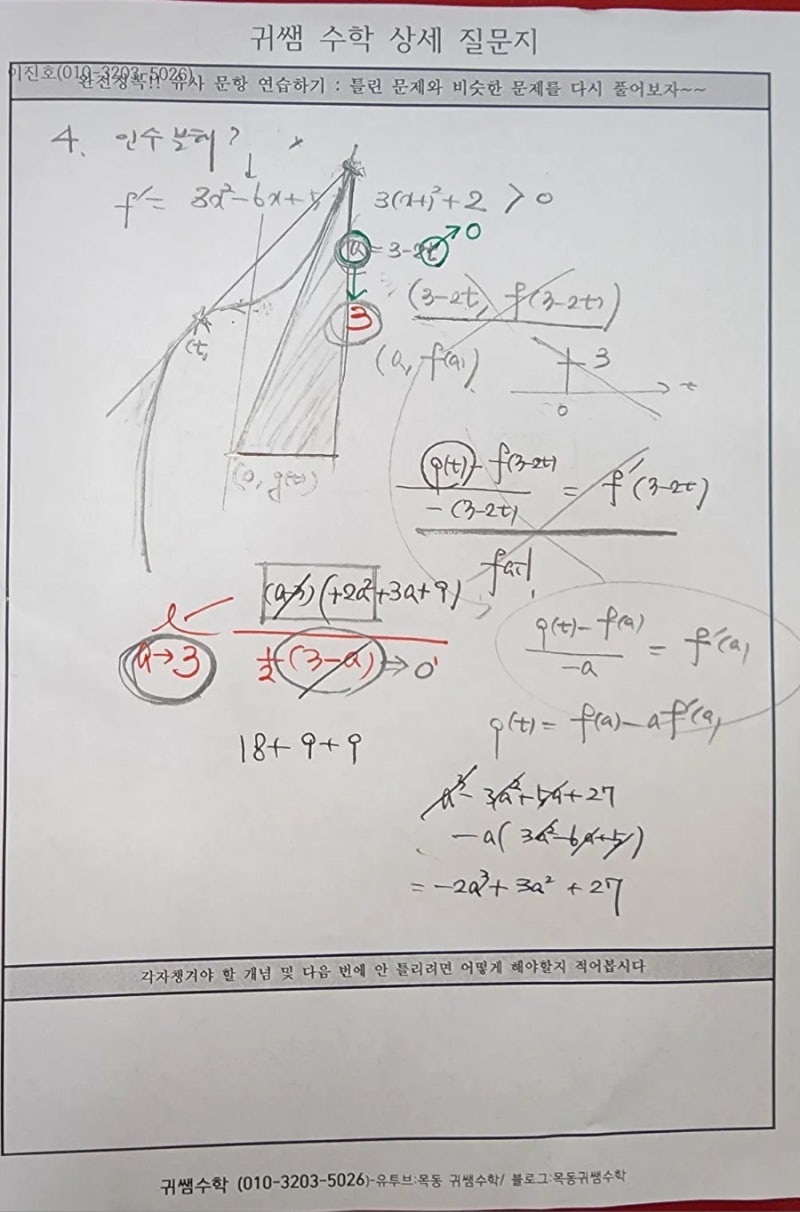 귀쌤 수학 상세 질문지
이진호(010-3203-5026)
완전정복!! 유사 문항 연습하기 : 틀린 문제와 비슷한 문제를 다시 풀어보자~~
4. 인수분해?
f' = 3x²-6x+5
3(x-1)²+2 > 0
a = 3-2t → 0
3
(3-2t, f(3-2t))
(t,
(a, f(a))
3
0
t
(0, g(t))
g(t) - f(3-2t) / -(3-2t) = f'(3-2t)
l
a→3
(a-3)(+2a²+3a+9)
½(3-a) → 0
g(t) - f(a) / -a = f'(a)
g(t) = f(a) - a f'(a)
18+9+9
a³-3a²+5a+27
-a(3a²-6a+5)
= -2a³+3a²+27
각자챙겨야 할 개념 및 다음 번에 안 틀리려면 어떻게 해야할지 적어봅시다
귀쌤수학 (010-3203-5026)-유투브:목동 귀쌤수학/ 블로그:목동귀쌤수학